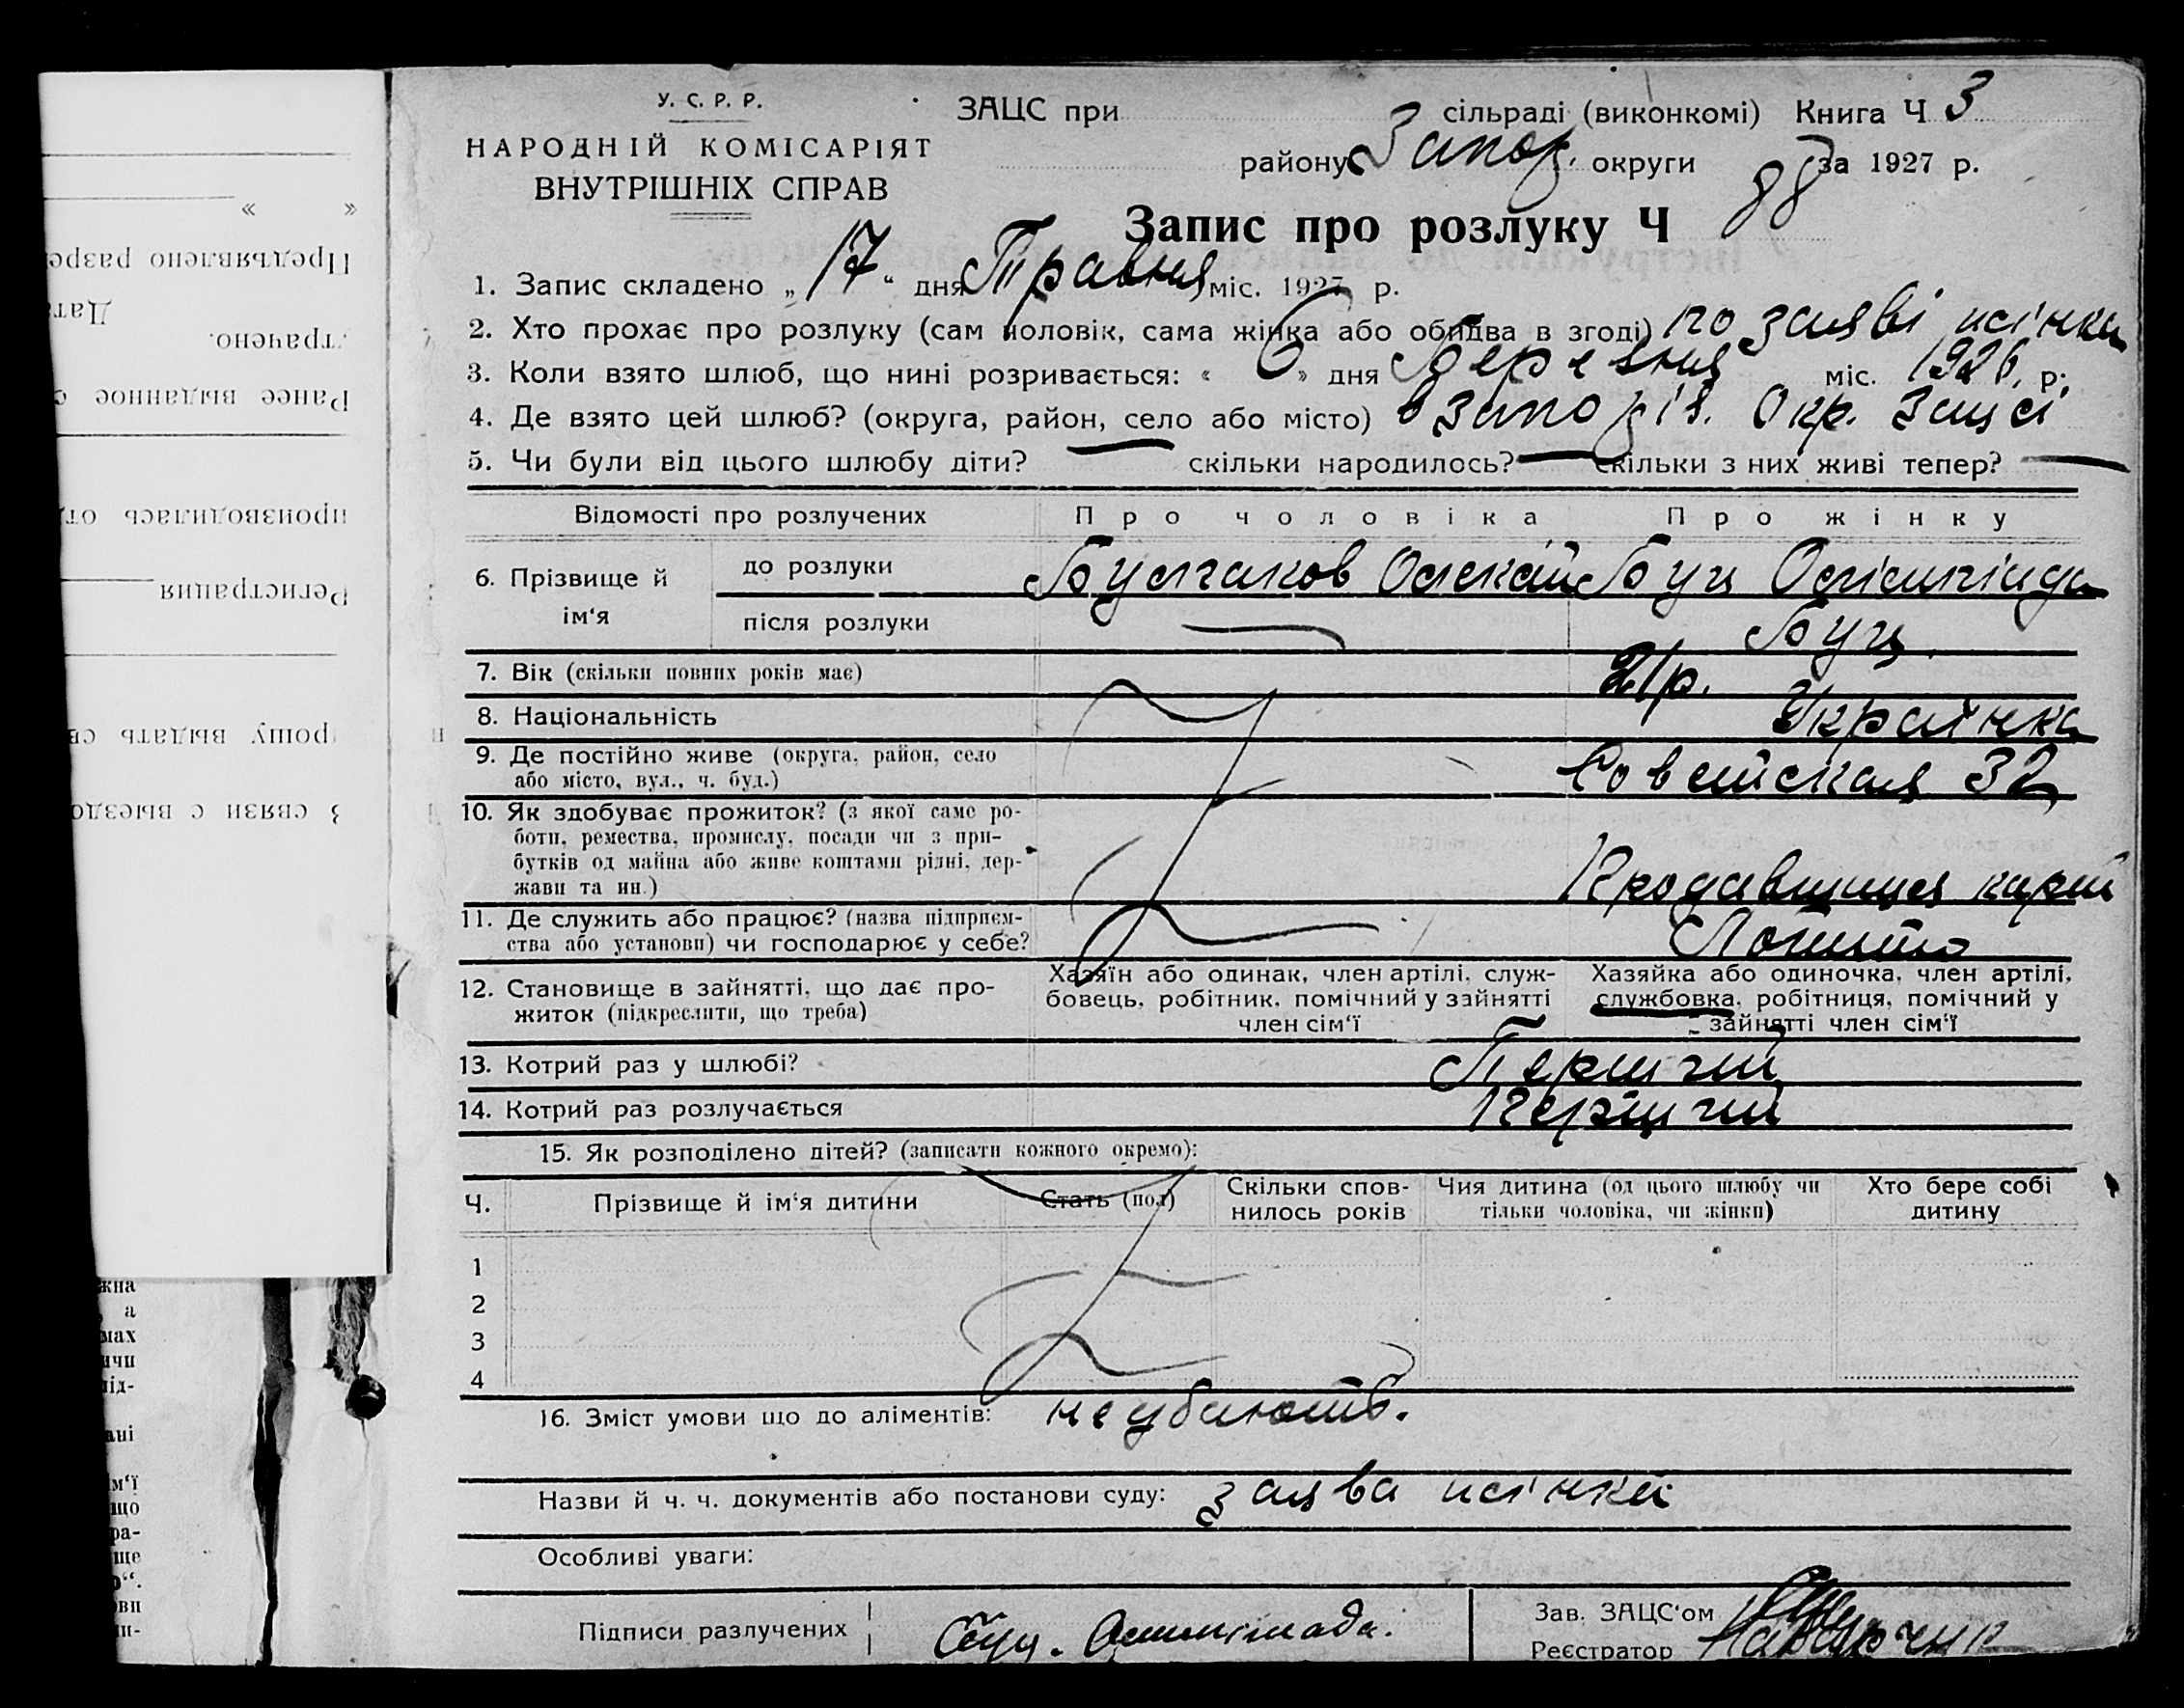 У. С. Р. Р.
НАРОДНІЙ КОМІСАРІЯТ
ВНУТРІШНІХ СПРАВ
ЗАЦС при сільраді (виконкомі) Книга Ч 3
району Запор. округи за 1927 р.
Запис про розлуку Ч 88
1. Запис складено „17“ дня Травня міс. 1927 р.
2. Хто прохає про розлуку (сам чоловік, сама жінка або обидва в згоді) по заяві жінки
3. Коли взято шлюб, що нині розривається: « 6 » дня Березня міс. 1926. р.
4. Де взято цей шлюб? (округа, район, село або місто) в Запоріз. Окр. Зацсі
5. Чи були від цього шлюбу діти? — скільки народилось? — скільки з них живі тепер? —
Відомості про розлучених Про чоловіка Про жінку
6. Прізвище й ім‘я
до розлуки Булгаков Буц
після розлуки — Буц.
7. Вік (скільки повних років має) 21 р.
8. Національність Українка
9. Де постійно живе (округа, район, село
або місто, вул., ч. буд.) Совейская 32
10. Як здобуває прожиток? (з якої саме ро-
боти, ремества, промислу, посади чи з при-
бутків од майна або живе коштами рідні, дер-
жави та ин.) Продавщиця карт
11. Де служить або працює? (назва підприєм-
ства або установи) чи господарює у себе? Лотто
12. Становище в зайнятті, що дає про-
житок (підкреслити, що треба)
Хазяїн або одинак, член артілі, служ-
бовець, робітник, помічний у зайнятті
член сім‘ї
Хазяйка або одиночка, член артілі,
службовка, робітниця, помічний у
зайнятті член сім‘ї
13. Котрий раз у шлюбі? Перший
14. Котрий раз розлучається Перший
15. Як розподілено дітей? (записати кожного окремо):
Ч. Прізвище й ім‘я дитини Стать (пол) Скільки спов-
нилось років Чия дитина (од цього шлюбу чи
тільки чоловіка, чи жінки) Хто бере собі
дитину
1
2
3
4
16. Зміст умови що до аліментів:
Назви й ч. ч. документів або постанови суду: заява жінки
Особливі уваги:
Підписи разлучених Буц.
Зав. ЗАЦС‘ом
Реєстратор
« »
Предъявлено разре
Дата
трачено.
Ранее выданное с
производилась от
Регистрация
прошу выдать св
З связи с выездо
жна
а
мах
ичи
під-
ані
м‘ї
що
ра-
ще
о“.
ови
ин-